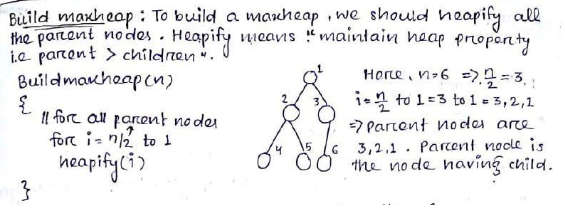 Build maxheap : To build a maxheap, we should heapify all
the parent nodes. Heapify means "maintain heap property
i.e parent > children".
Buildmaxheap(n)
{
// for all parent nodes
for i = n/2 to 1
heapify(i)
}
1
2 3
4 5 6
Here, n=6 => n/2 = 3.
i = n/2 to 1 = 3 to 1 = 3,2,1
=> Parent nodes are
3,2,1. Parent node is
the node having child.